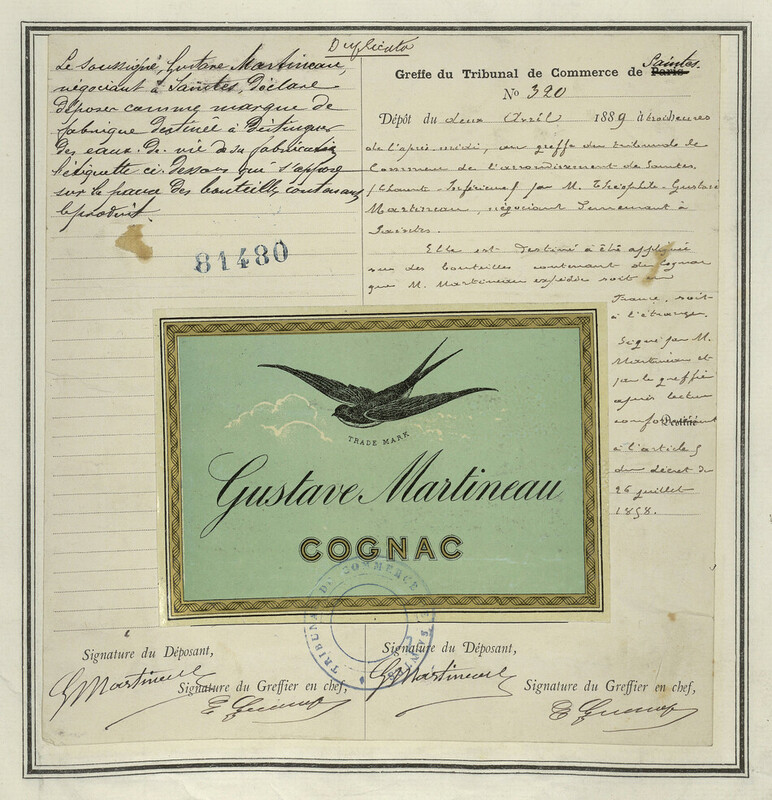 Duplicata
Le soussigné, Gustave Martineau,
négociant à Saintes, Déclare
déposer comme marque de
fabrique destinée à distinguer
des eaux-de-vie de sa fabrication
l'étiquette ci-dessous qui s'appose
sur la panse des bouteilles contenant
le produit.
81480
Greffe du Tribunal de Commerce de Paris Saintes
No 320
Dépôt du deux Avril 1889 à trois heures
de l'après-midi, au greffe du tribunal de
Commerce de l'arrondissement de Saintes
(Charente-Inférieure) par M. Théophile-Gustave
Martineau, négociant demeurant à
Saintes.
Elle est destiné à être appliquée
sur des bouteilles contenant du Cognac
que M. Martineau expédie soit en
France, soit
à l'étranger.
Signé par M.
Martineau et
par le greffier
après lecture
conformément
Destiné
à l'article 5
du décret du
26 juillet
1858.
TRADE MARK
Gustave Martineau
COGNAC
TRIBUNAL DE COMMERCE DE SAINTES
Signature du Déposant,
GMartineau
Signature du Greffier en chef,
Signature du Déposant,
GMartineau
Signature du Greffier en chef,